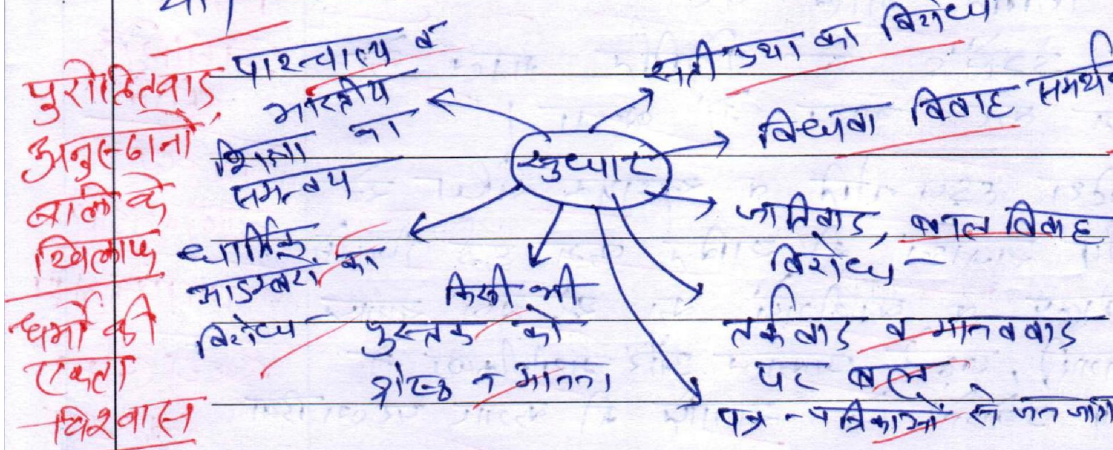 पुरोहितवाद,
अनुस्ठानों
बलि के
खिलाफ
धर्मो की
एकता
विश्वास
पाश्चात्य व
भारतीय
शिक्षा का
समन्वय
धार्मिक
आडम्बरों का
विरोध
किसी भी
पुस्तक को
श्रेष्ठ न मानना
सुधार
सती प्रथा का विरोध
विधवा विवाह समर्थन
जातिवाद, बाल विवाह
विरोध
तर्कवाद व मानववाद
पर बल
पत्र-पत्रिकाओं से जन